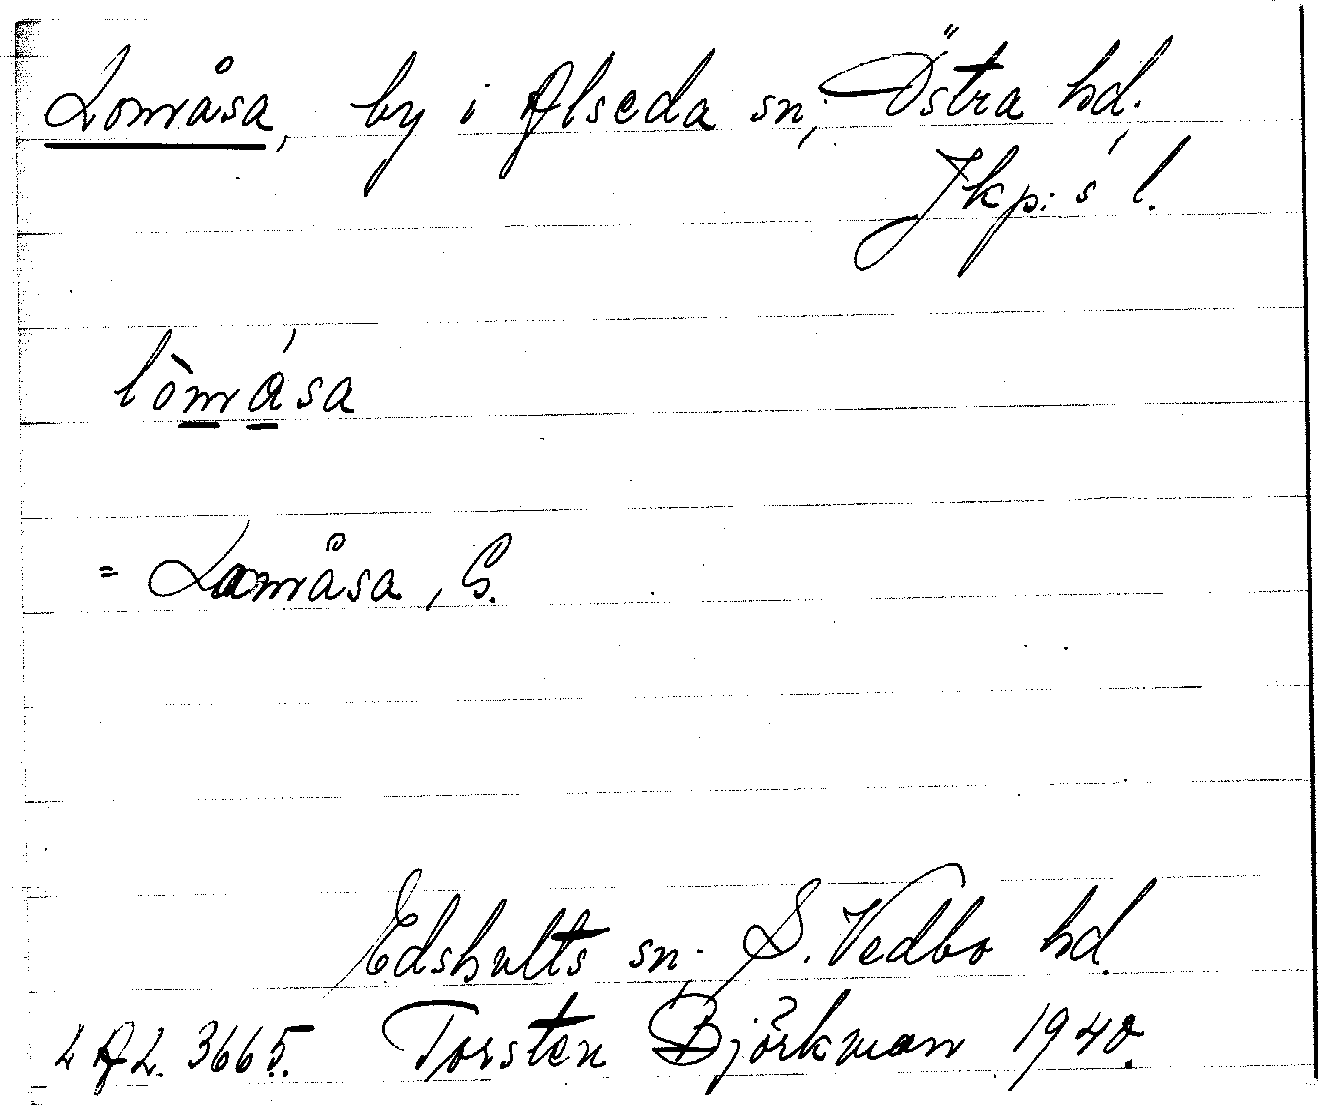 Lomåsa, by i Alseda sn, Östra hd,
Jkp:s l.
lòmása
= Lamåsa, G.
Edshults sn, S. Vedbo hd.
LAL. 3665. Torsten Björkman 1940.